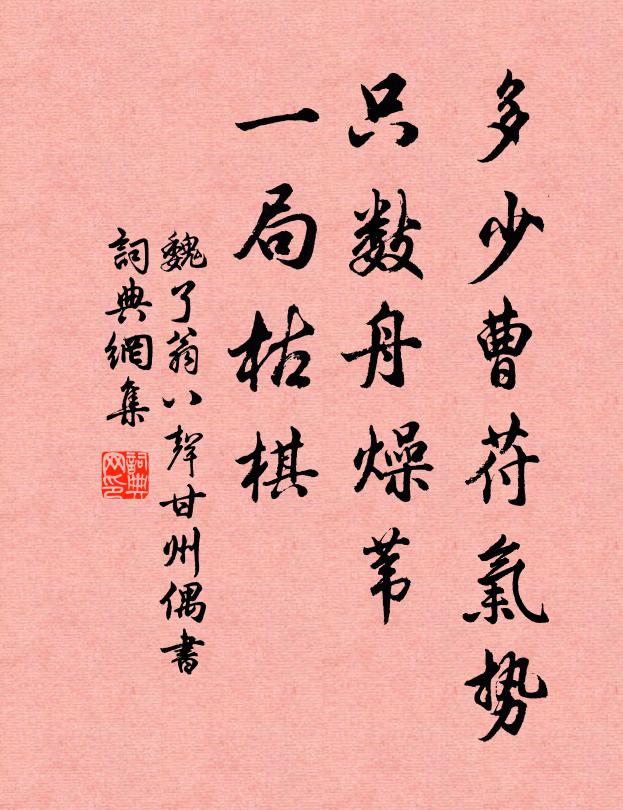 多少曹苻氣勢
只數舟燥葦
一局枯棋
魏了翁八聲甘州偶書
詞典網集
詞典网印